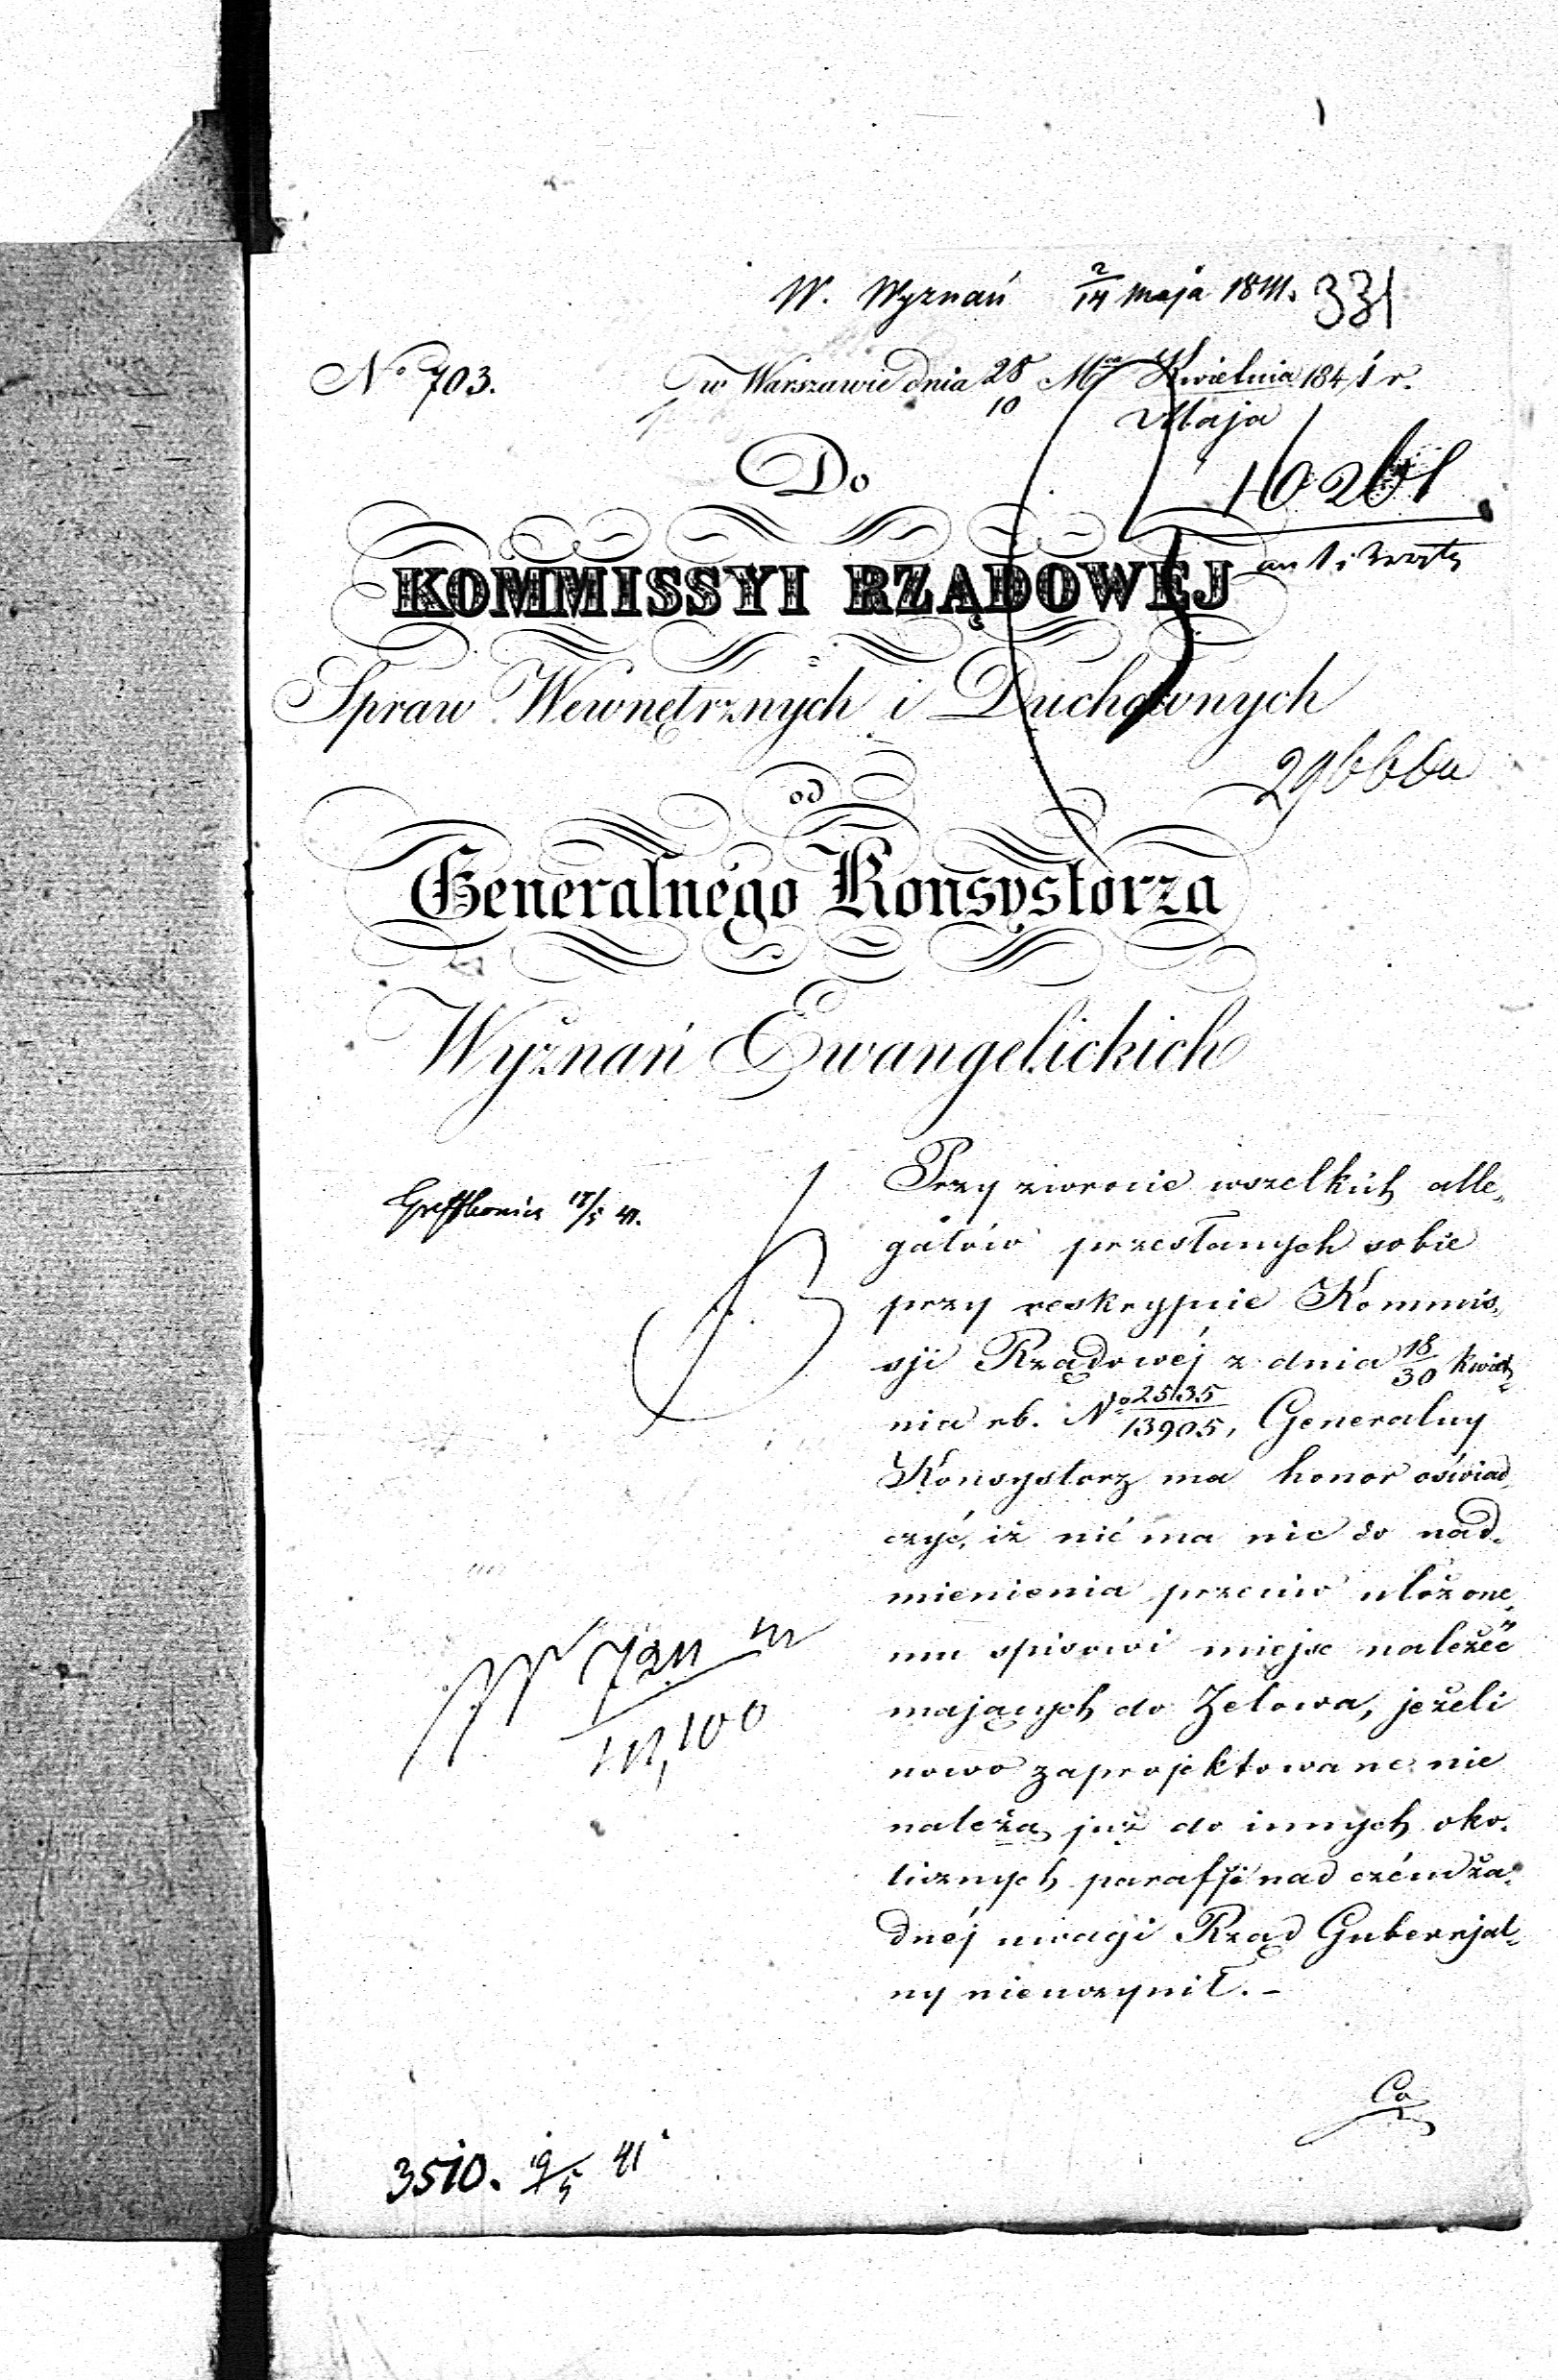 W. Wyznań 2/14 Maja 1841. 331
No 703. w Warszawie dnia 28/10 Mca Kwietnia/Maja 1841 r.
Do
10261
KOMMISSYI RZĄDOWEJ
Spraw Wewnętrznych i Duchownych
od
Generalnego Konsystorza
Wyznań Ewangelickich
Przy zwrocie wszelkich alle-
gatów przesłanych sobie
przy reskrypcie Kommis-
sji Rządowéj z dnia 18/30 kwiet-
nia rb. No 2535/13905, Generalny
Konsystorz ma honor oświad-
czyć, iż nié ma nic do nad-
mienienia przeciw ułożone-
mu spisowi miejsc należéć
mających do Zelowa, jeżeli
nowo zaprojektowane nie
należą już do innych oko-
licznych parafji nad czém ża-
dnéj uwagi Rząd Gubernjal-
ny nieuczynił. –
3510. 19/5 41